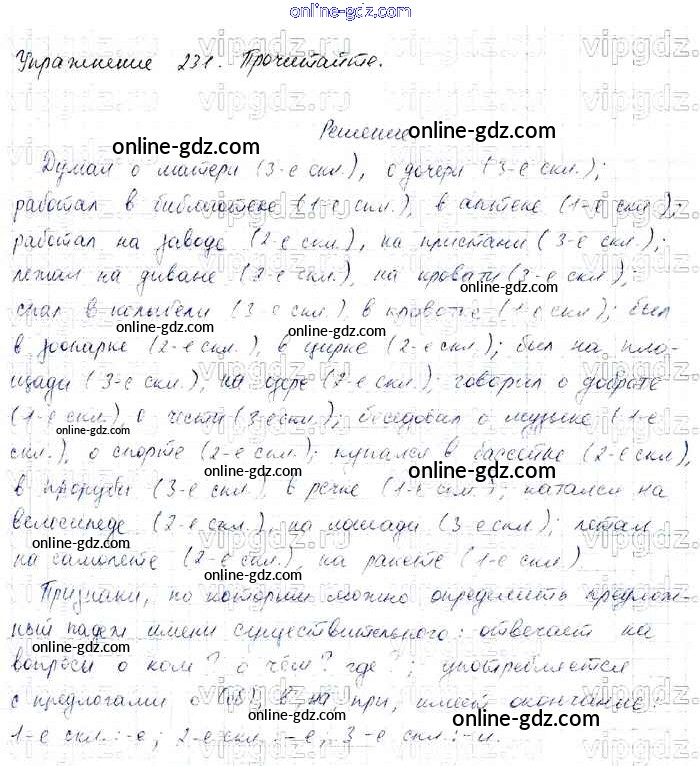 online-gdz.com
Упражнение 231. Прочитайте.
Решение
online-gdz.com online-gdz.com
Думал о матери (3-е скл.), о дочери (3-е скл.);
работал в библиотеке (1-е скл.), в аптеке (1-е скл.);
работал на заводе (2-е скл.), на пристани (3-е скл.);
лежал на диване (2-е скл.), на кровати (3-е скл.);
спал в колыбели (3-е скл.), в кроватке (1-е скл.); был
в зоопарке (2-е скл.), в цирке (2-е скл.); был на пло-
щади (3-е скл.), на озере (2-е скл.); говорил о доброте
(1-е скл.), о чести (3-е скл.); беседовал о музыке (1-е
скл.), о спорте (2-е скл.); купался в бассейне (2-е скл.),
в проруби (3-е скл.), в речке (1-е скл.); катался на
велосипеде (2-е скл.), на лошади (3-е скл.); летал
на самолете (2-е скл.), на ракете (1-е скл.)
Признаки, по которым можно определить предлож-
ный падеж имени существительного: отвечает на
вопросы о ком? о чём? где?; употребляется
с предлогами о (об), в, на, при, имеет окончание:
1-е скл.: -е; 2-е скл.: -е; 3-е скл.: -и.